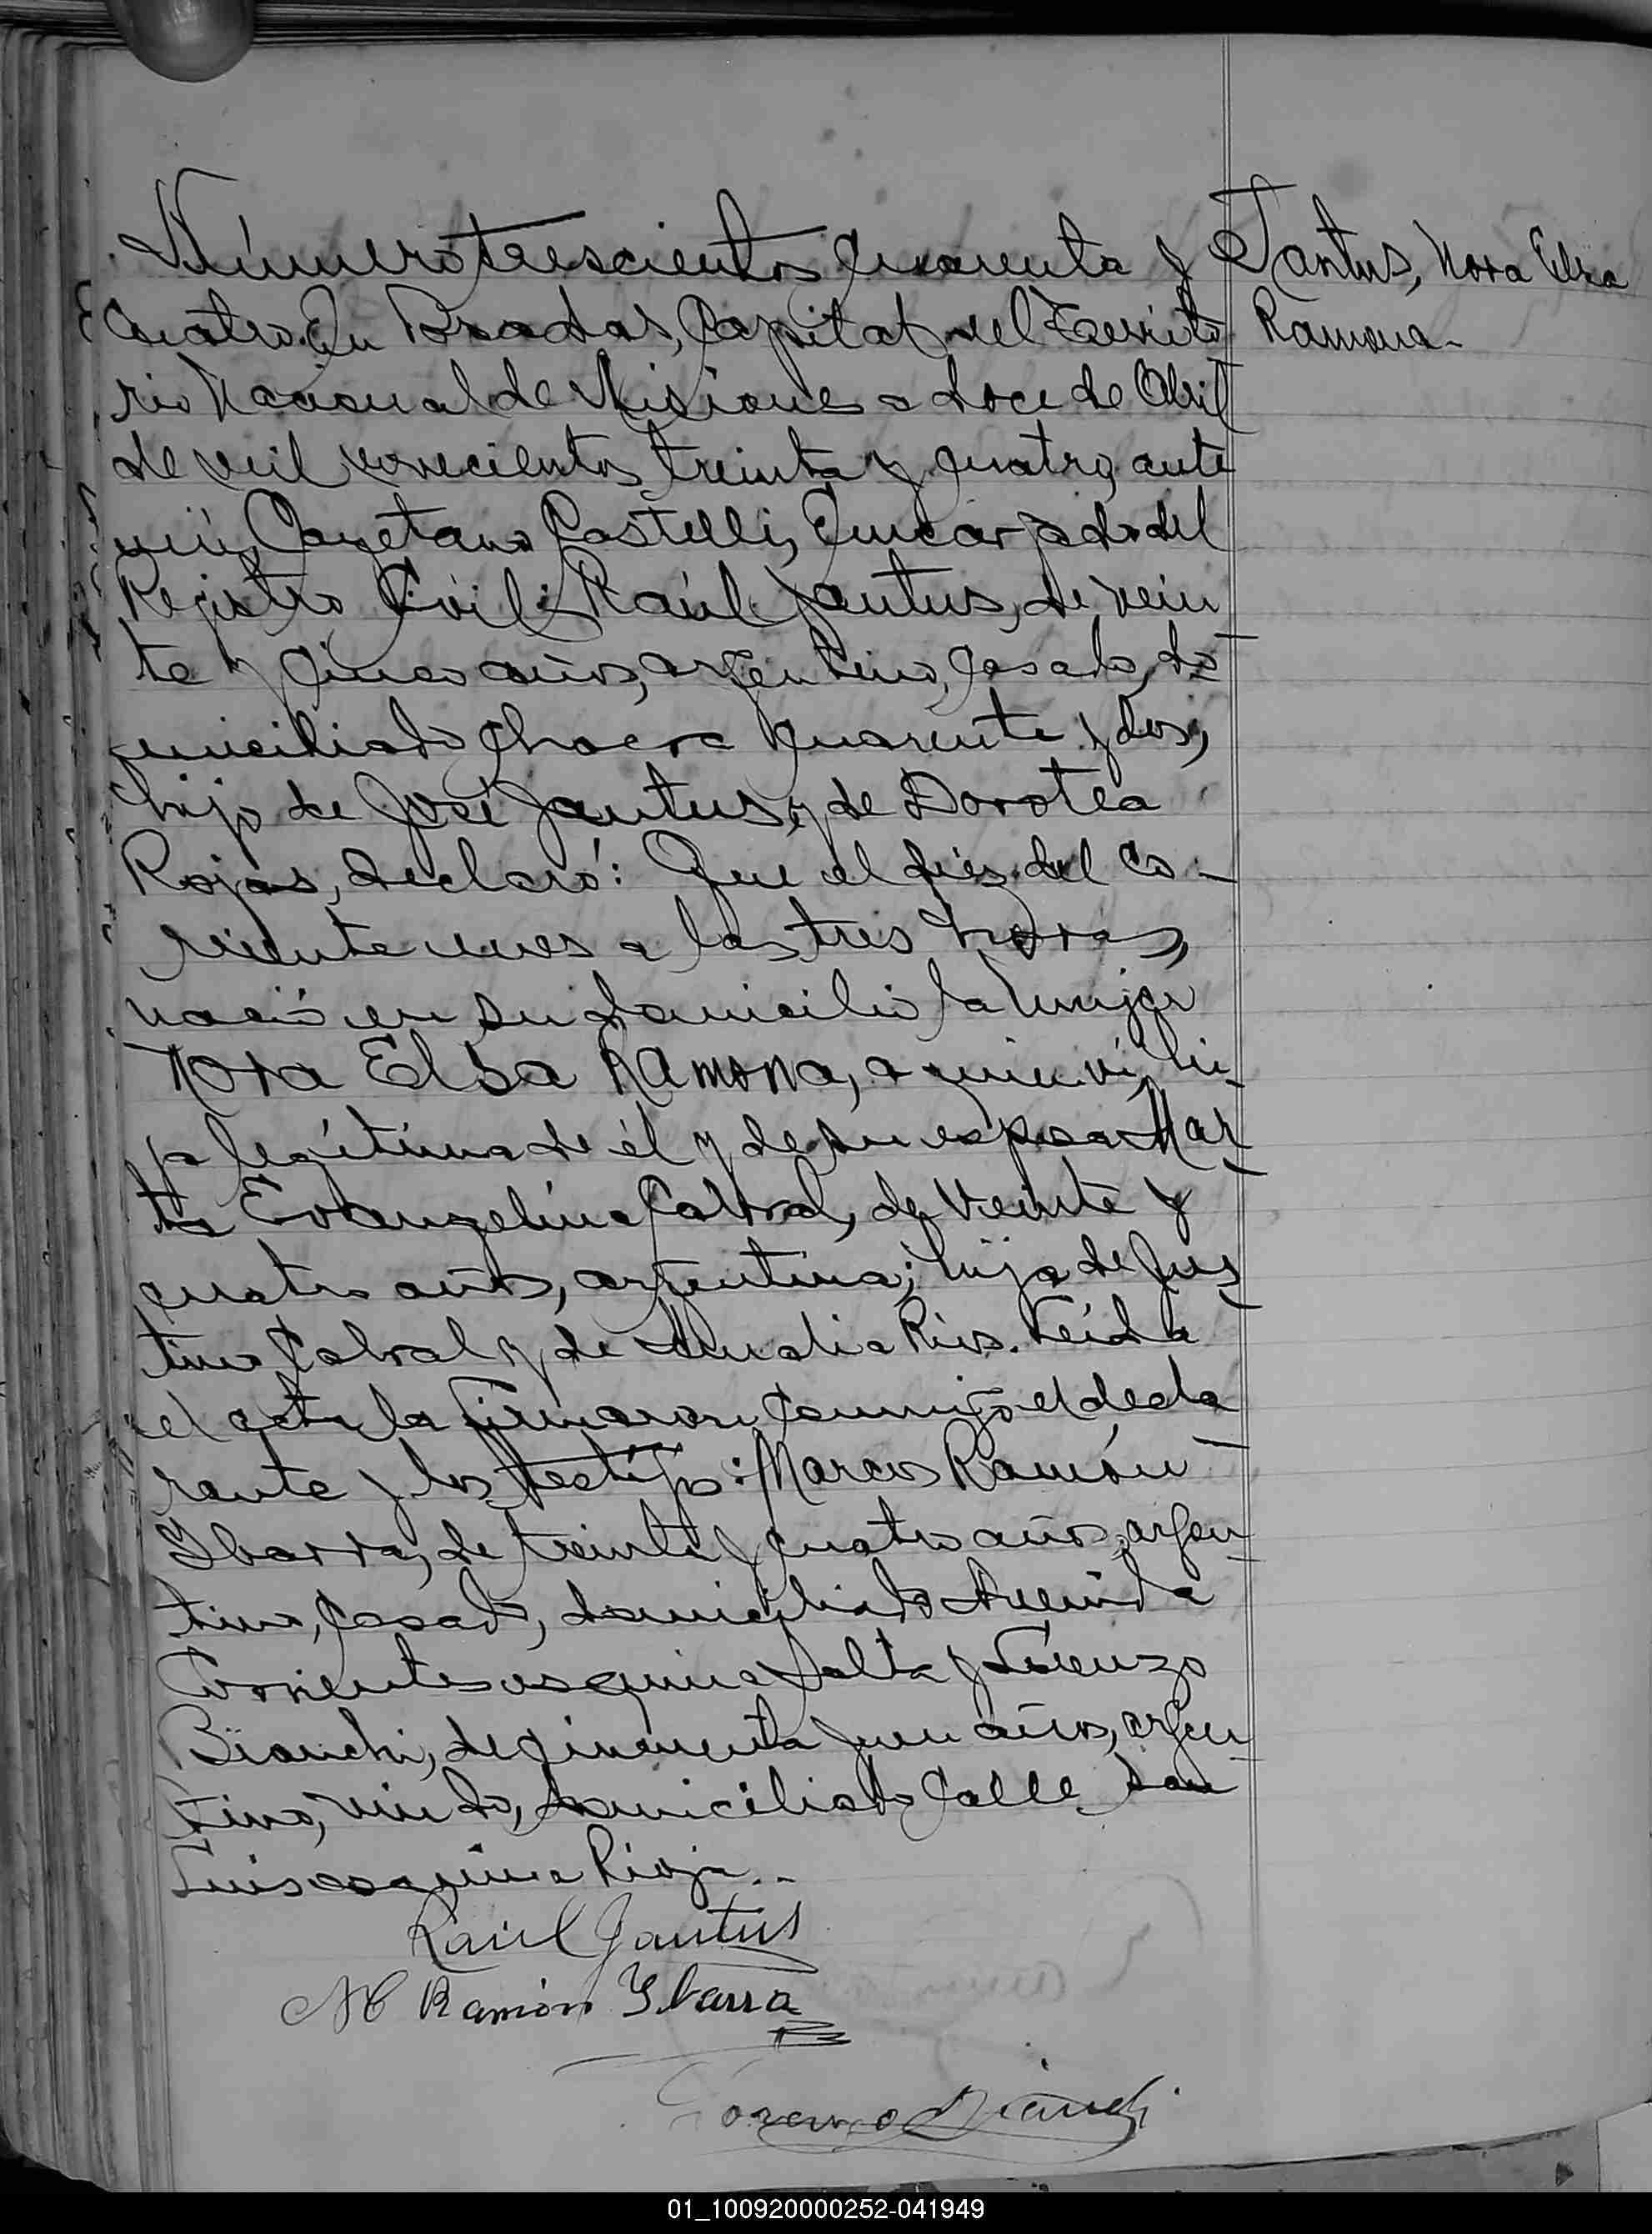 Número trescientos cuarenta y
cuatro. En Posadas, Capital del Territo
rio Nacional de Misiones a doce de Abril
de mil novecientos treinta y cuatro, ante
mí, Cayetano Castelli, Encargado del
Registro Civil: Raúl Jantus, de vein
te y cinco años, argentino, casado, do-
miciliado chacra cuarenta y dos,
hijo de José Jantus, y de Dorotea
Rojas, declaró: Que el diez del co-
rriente mes a las tres horas,
nació en su domicilio la mujer
Nora Elsa Ramona, a quien ví, hi-
ja legítima de él y de su esposa Mar-
ta Evangelina Cabral, de veinte y
cuatro años, argentina; hija de Jus-
tino Cabral y de Amalia Rios. Leída
el acta la firmaron conmigo el decla-
rante y los testigos: Marcos Ramón
Ybarra, de treinta y cuatro años, argen-
tino, casado, domiciliado Avenida
Corrientes esquina Salta y Lorenzo
Bianchi, de cincuenta y un años, argen-
tino, viudo, domiciliado Calle San
Luis esquina Rioja.-
Raúl Jantus
M Ramón Ybarra
Lorenzo Bianchi
Jantus, Nora Elsa
Ramona-
01_100920000252-041949